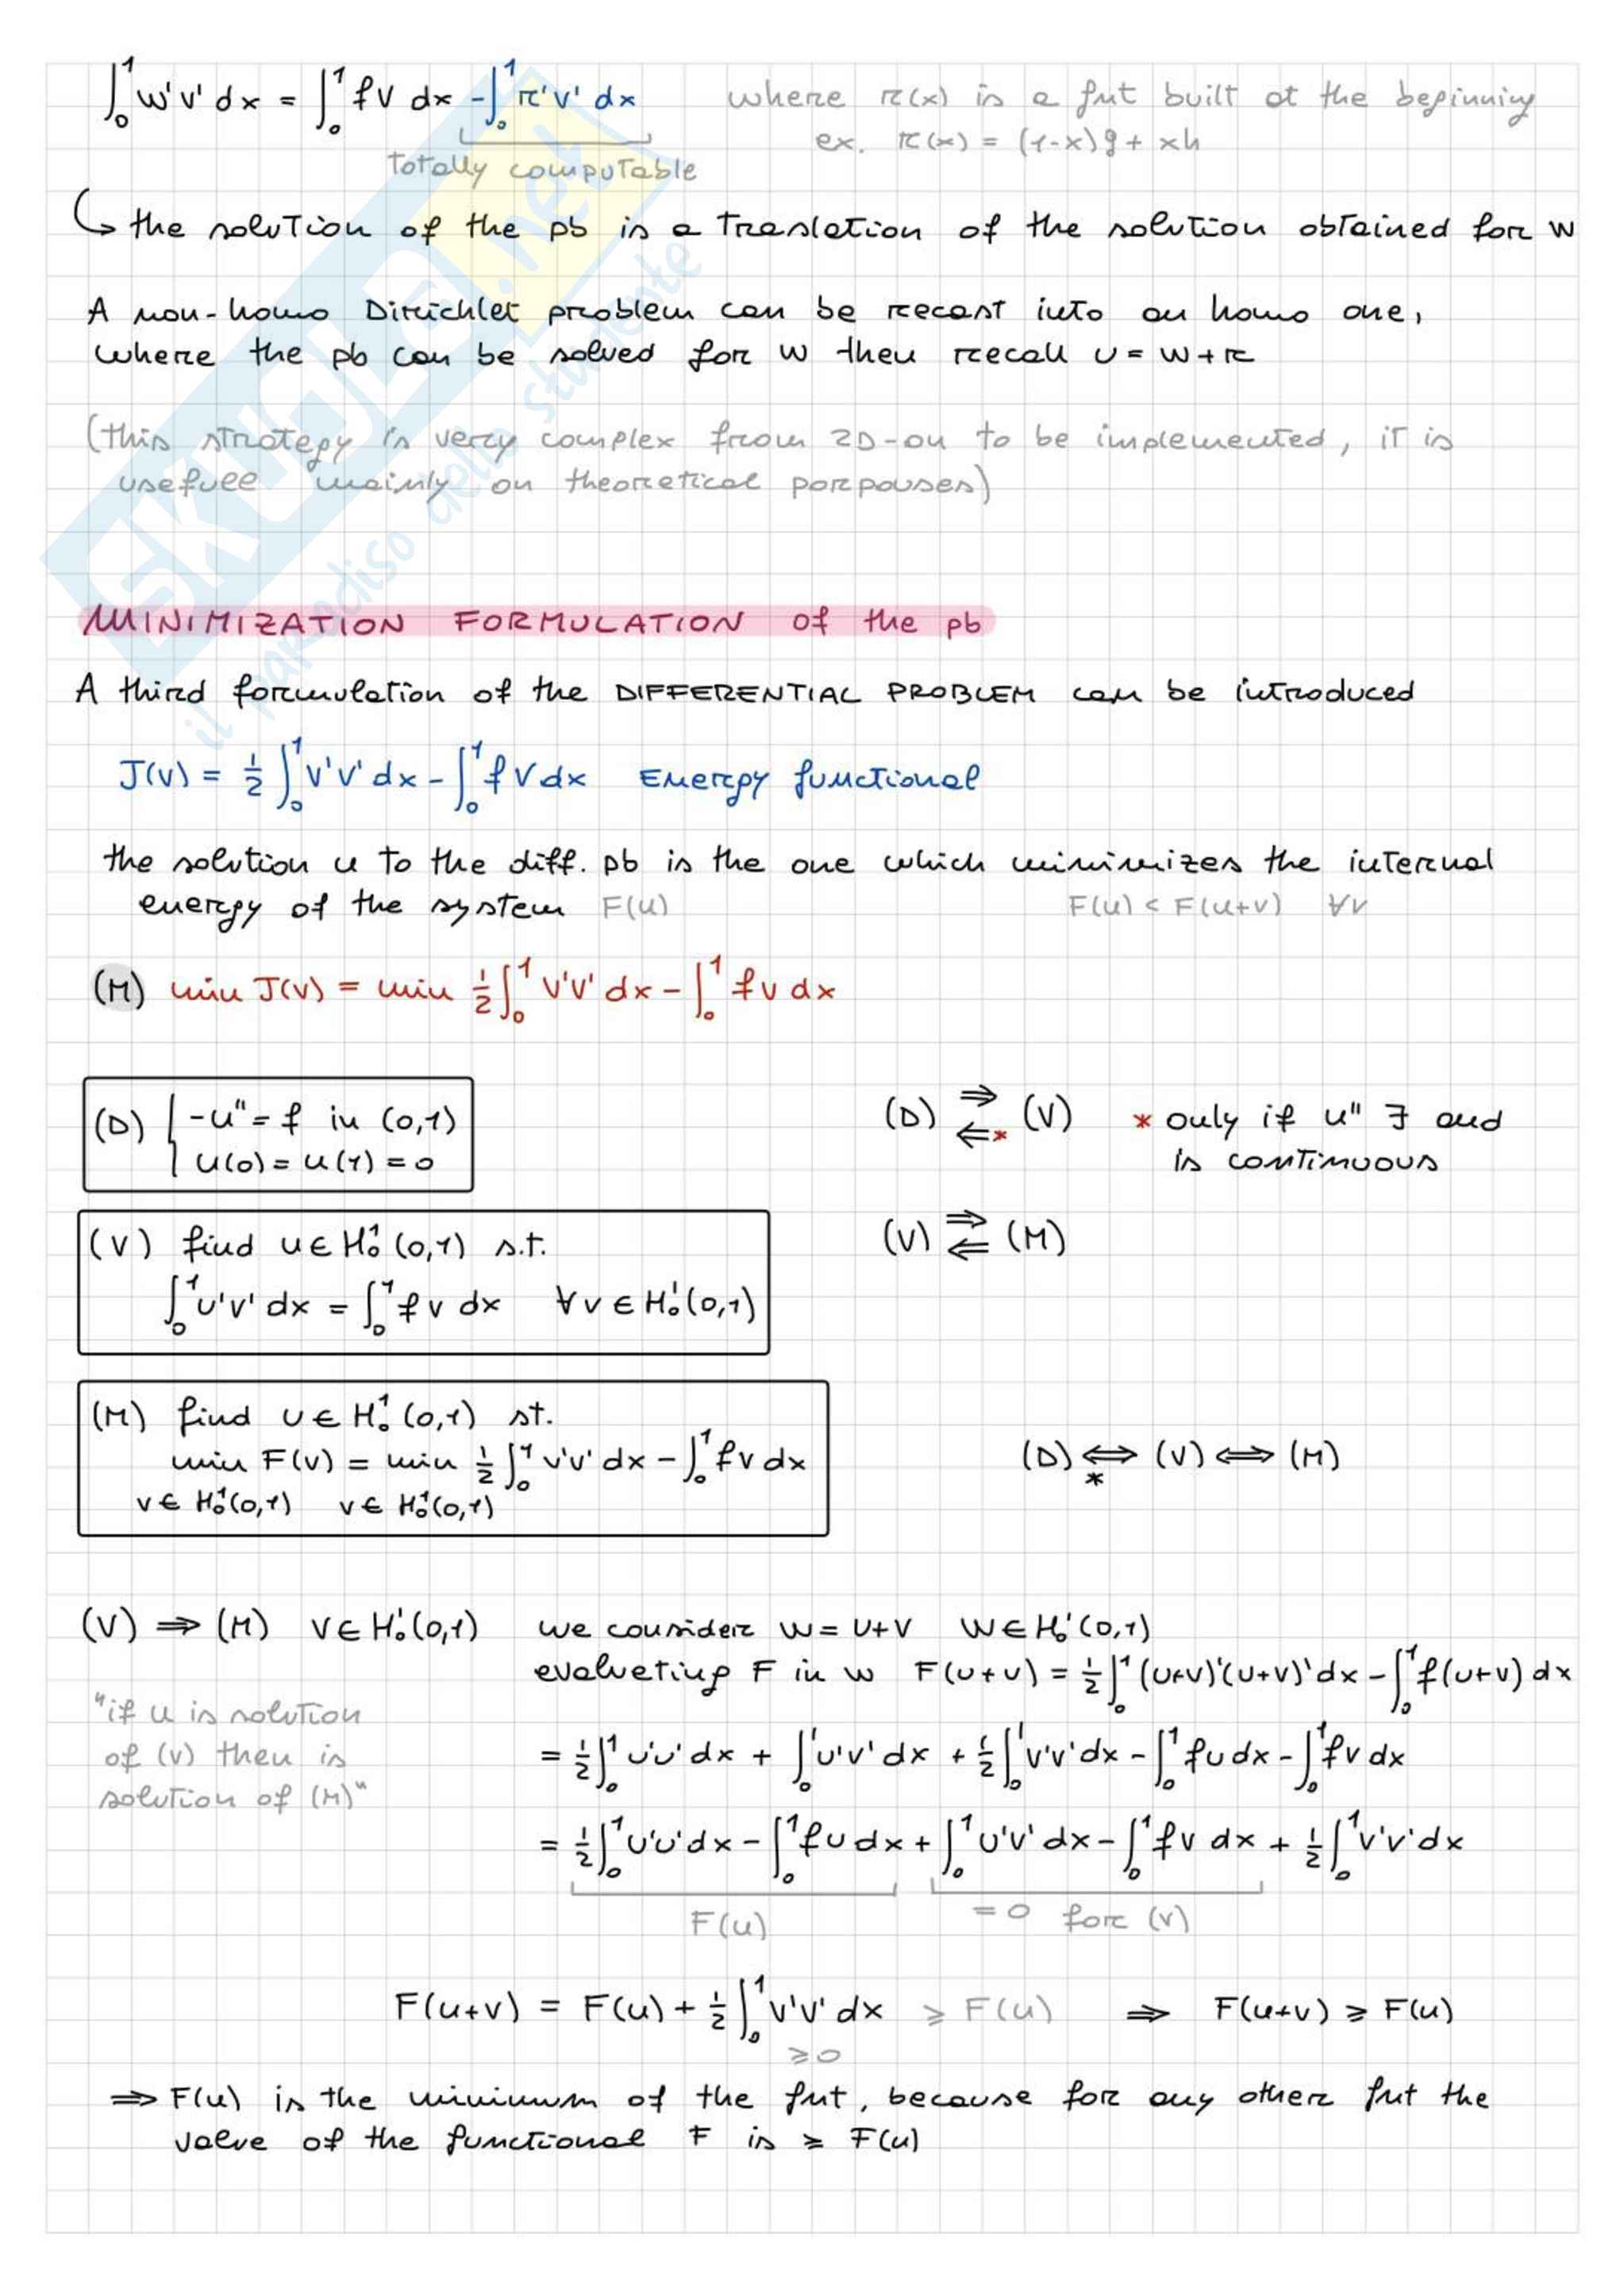 ∫₀¹ w'v' dx = ∫₀¹ fv dx - ∫₀¹ r'v' dx where r(x) is a fnt built at the beginning
totally computable ex. r(x) = (1-x)g + xh
↳ the solution of the pb is a translation of the solution obtained for w
A non-homo Dirichlet problem can be recast into an homo one,
where the pb can be solved for w then recall u = w + r
(this strategy is very complex from 2D-on to be implemented, it is
usefull mainly on theoretical porpouses)
MINIMIZATION FORMULATION of the pb
A third formulation of the DIFFERENTIAL PROBLEM can be introduced
J(v) = ½ ∫₀¹ v'v' dx - ∫₀¹ f v dx Energy functional
the solution u to the diff. pb is the one which minimizes the internal
energy of the system F(u) F(u) < F(u+v) ∀v
(M) min J(v) = min ½ ∫₀¹ v'v' dx - ∫₀¹ f v dx
(D) { -u'' = f in (0,1)
u(0) = u(1) = 0
(D) ⇒ ⇐* (V) * only if u'' ∃ and
is continuous
(V) find u ∈ H₀¹(0,1) s.t.
∫₀¹ u'v' dx = ∫₀¹ f v dx ∀v ∈ H₀¹(0,1)
(V) ⇒ ⇐ (M)
(M) find u ∈ H₀¹(0,1) st.
min F(v) = min ½ ∫₀¹ v'v' dx - ∫₀¹ f v dx
v ∈ H₀¹(0,1) v ∈ H₀¹(0,1)
(D) ⇔* (V) ⇔ (M)
(V) ⇒ (M) v ∈ H₀¹(0,1) we consider w = u+v w ∈ H₀¹(0,1)
evalueting F in w F(u+v) = ½ ∫₀¹ (u+v)'(u+v)' dx - ∫₀¹ f(u+v) dx
"if u is solution
of (V) then is
solution of (M)"
= ½ ∫₀¹ u'u' dx + ∫₀¹ u'v' dx + ½ ∫₀¹ v'v' dx - ∫₀¹ fu dx - ∫₀¹ fv dx
= ½ ∫₀¹ u'u' dx - ∫₀¹ fu dx + ∫₀¹ u'v' dx - ∫₀¹ fv dx + ½ ∫₀¹ v'v' dx
F(u) = 0 for (V)
F(u+v) = F(u) + ½ ∫₀¹ v'v' dx ⩾ F(u) ⇒ F(u+v) ⩾ F(u)
⩾0
⇒ F(u) is the minimum of the fnt, because for any other fnt the
value of the functional F is ⩾ F(u)
SKUOLA.net
il paradiso dello studente